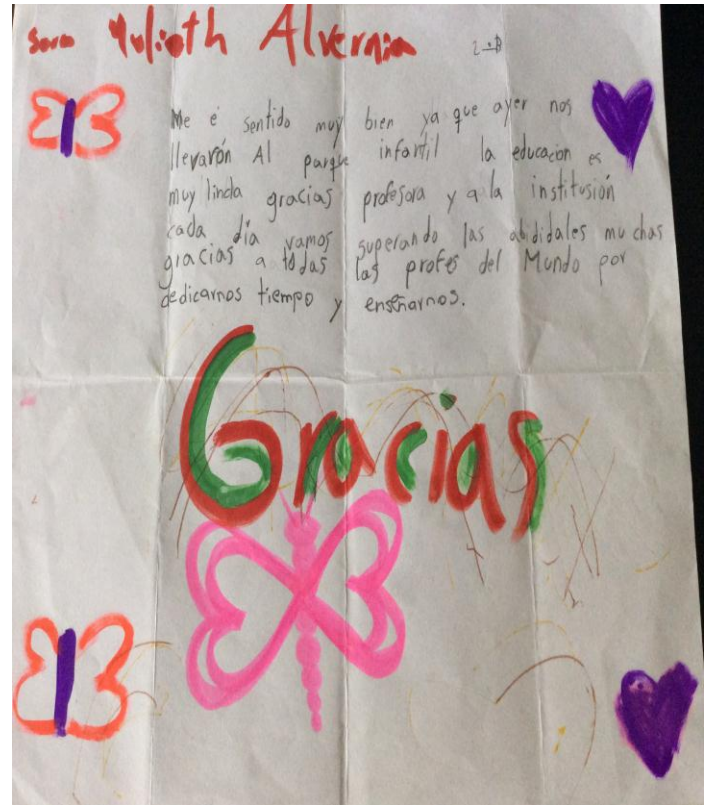 Sara Yulieth Alvernia 2-B
Me e sentido muy bien ya que ayer nos
llevarón Al parque infantil la educacion es
muy linda gracias profesora y a la institusión
cada día vamos superando las abididales muchas
gracias a todas las profes del Mundo por
dedicarnos tiempo y enseñarnos.
Gracias